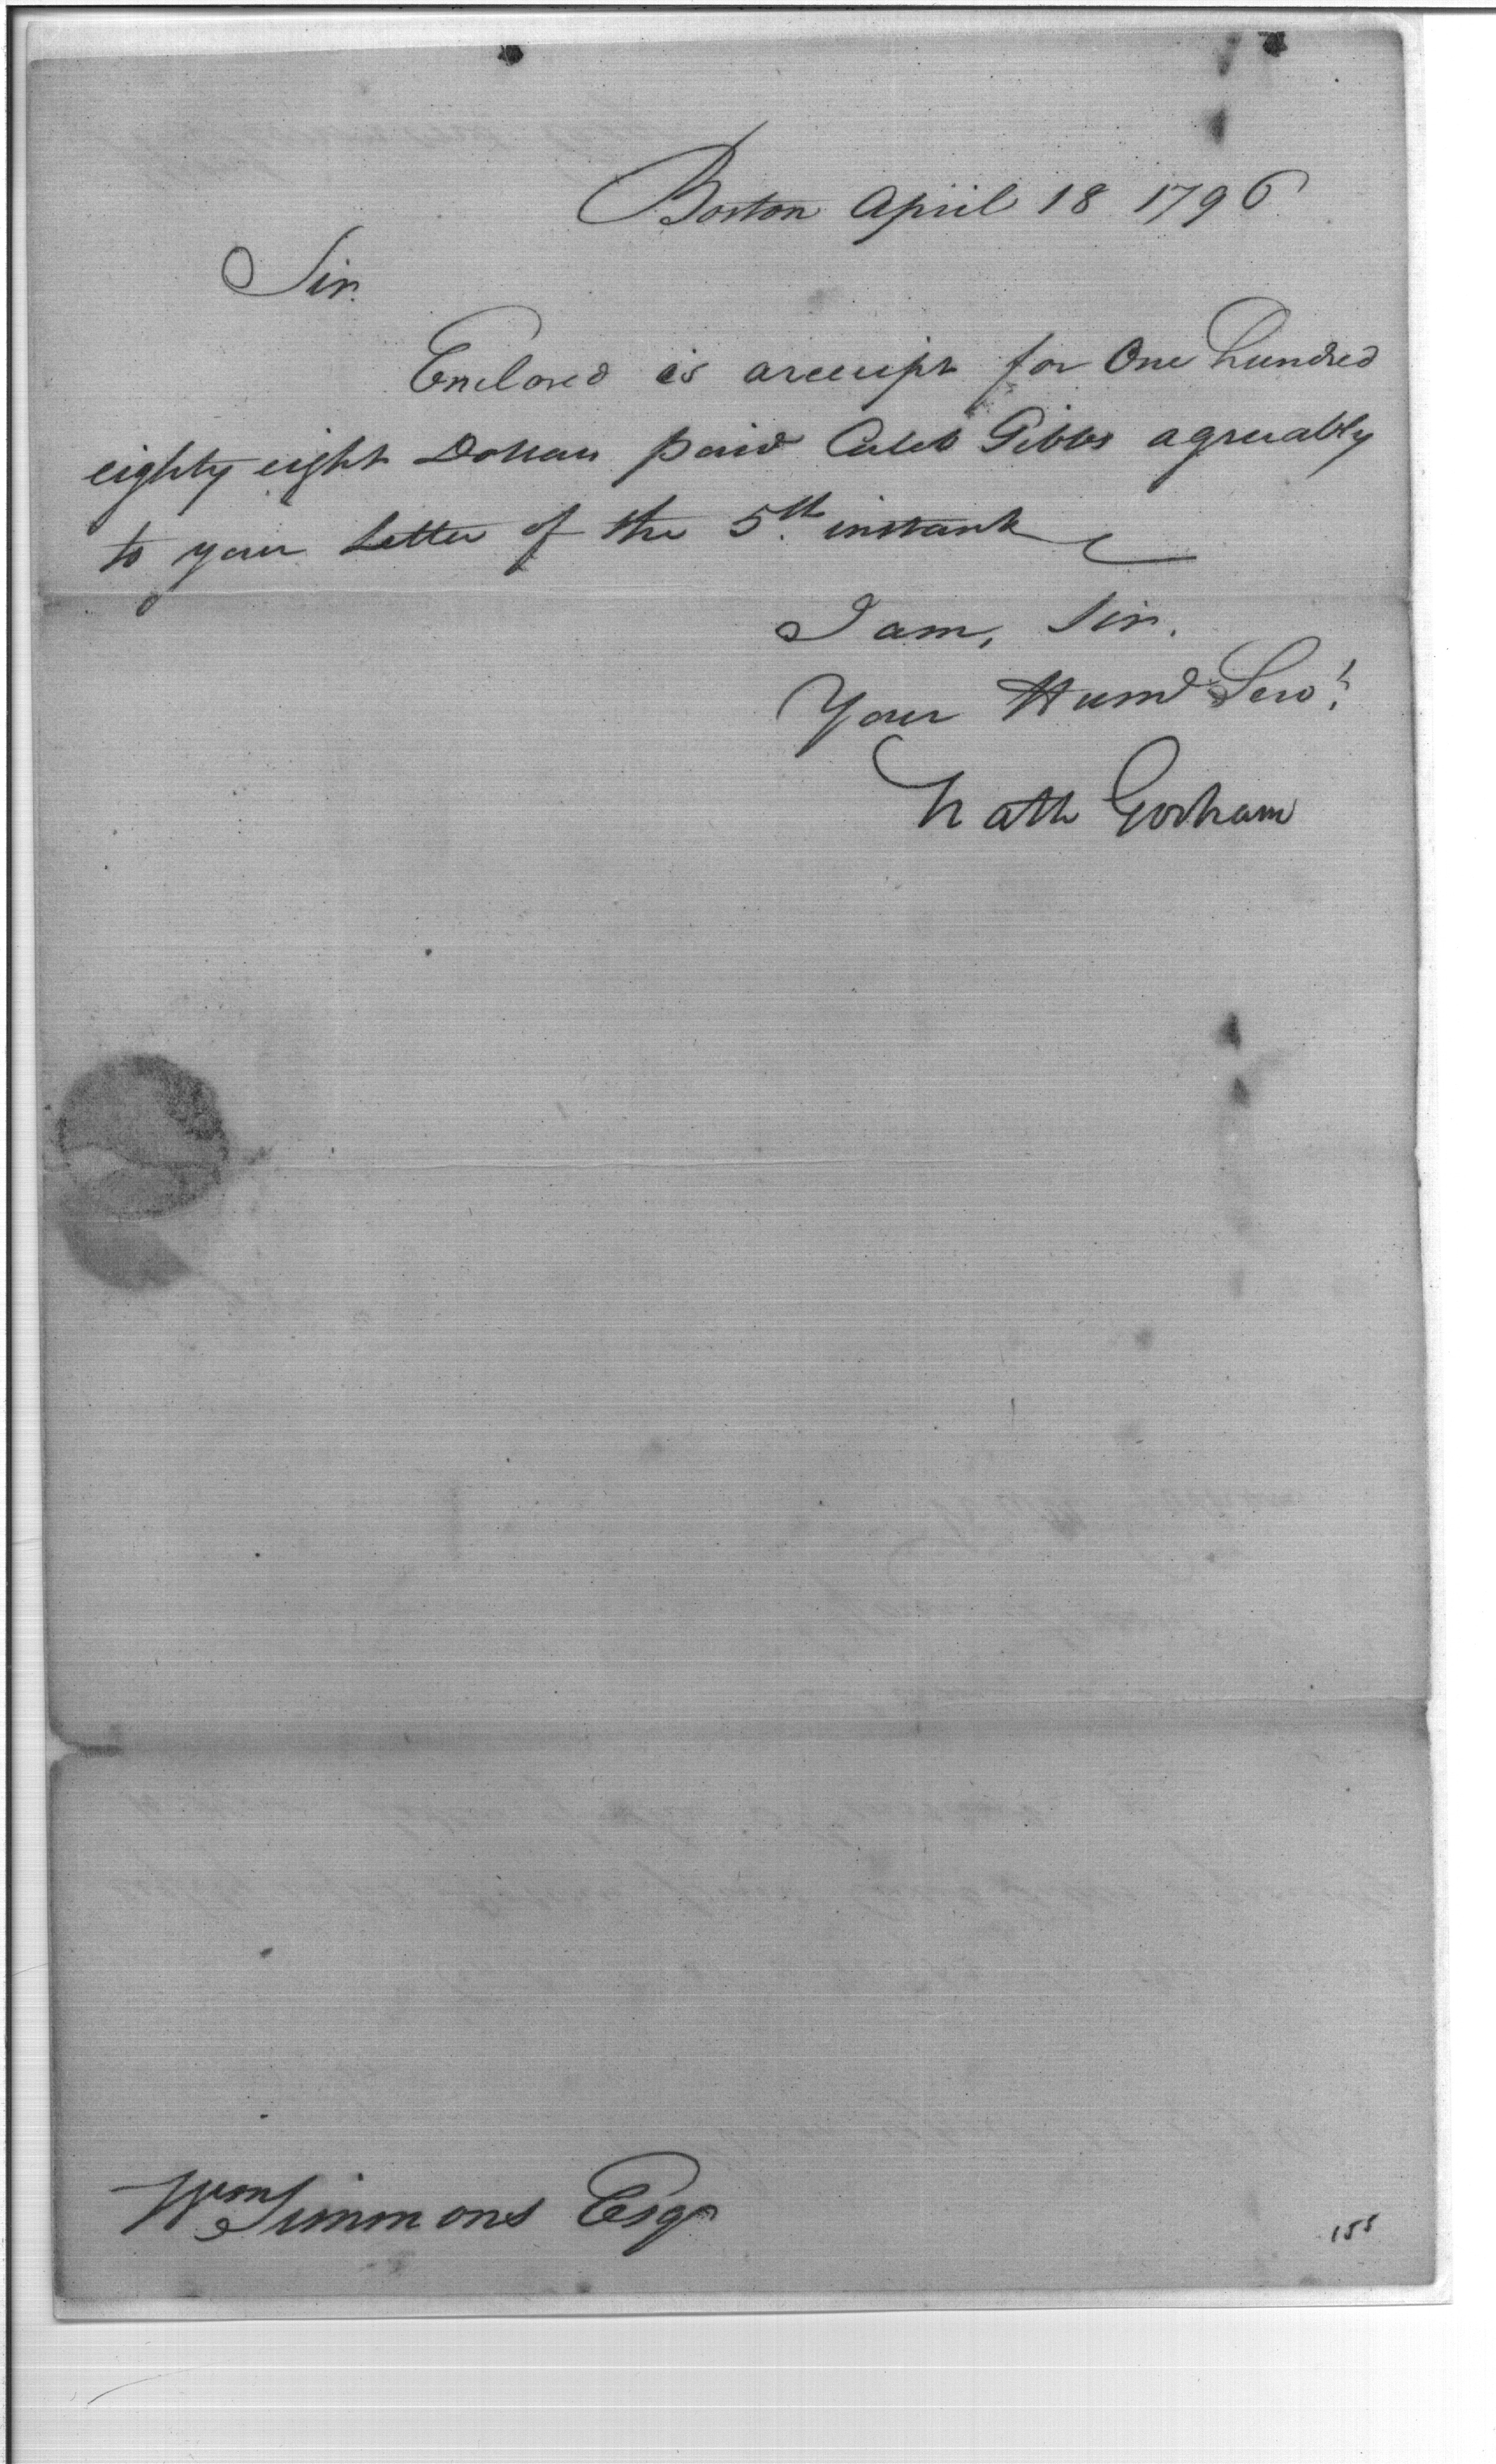 Boston April 18 1796
Sir.
Enclosed is a receipt for One hundred
eighty eight Dollars paid Caleb Gibbs agreeably
to your Letter of the 5th. instant
I am, Sir.
Your Hume Servt.
Nath Gorham
Wm Simmons Esqr
155